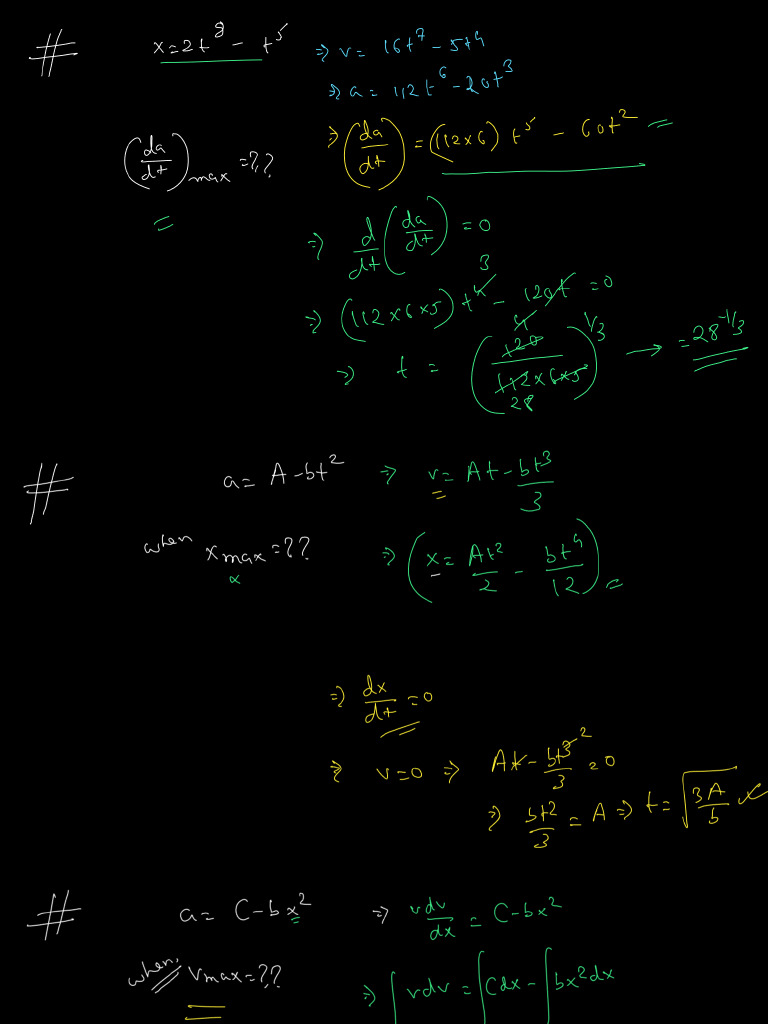 # x = 2t⁸ - t⁵ ⇒ v = 16t⁷ - 5t⁴
⇒ a = 112t⁶ - 20t³
(da/dt)max = ?? ⇒ (da/dt) = (112×6) t⁵ - 60t² =
⇒ d/dt (da/dt) = 0
⇒ (112×6×5) t⁴ 3 - 120t = 0
⇒ t = (120 4 / 112×6×5 28)^1/3 → = 28^-1/3
# a = A - bt² ⇒ v = At - bt³/3
when xmax = ?? ⇒ (x = At²/2 - bt⁴/12) =
⇒ dx/dt = 0
⇒ v = 0 ⇒ At - bt³ 2/3 = 0
⇒ bt²/3 = A ⇒ t = √(3A/b) ✓
# a = C - bx² ⇒ vdv/dx = C - bx²
when, Vmax = ?? ⇒ ∫vdv = ∫Cdx - ∫bx²dx